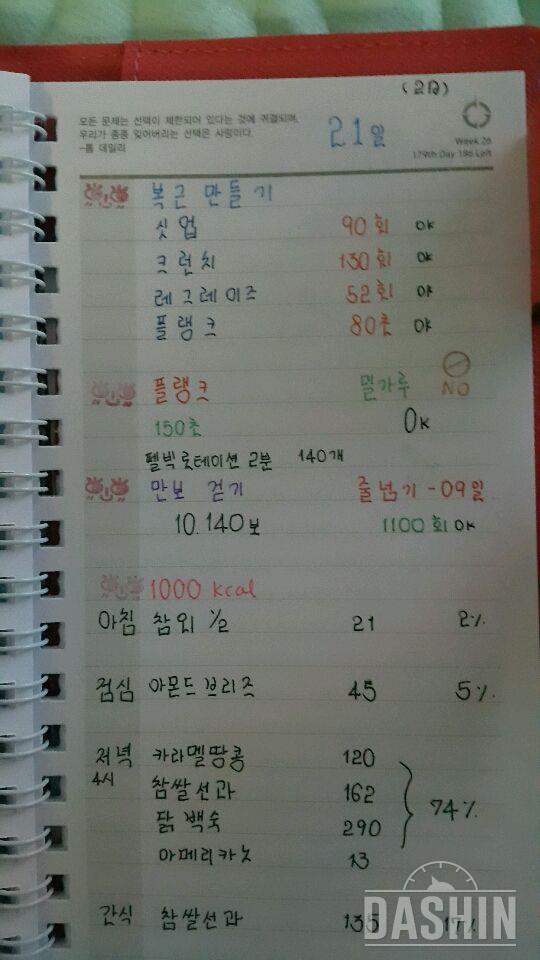 (2日)
모든 문제는 선택이 제한되어 있다는 것에 귀결되며,
우리가 종종 잊어버리는 선택은 사랑이다.
-톰 데일리
21일
Week 26
179th Day 186 Left
복근 만들기
싯업 90회 OK
크런치 130회 OK
레그레이즈 52회 OK
플랭크 80초 OK
플랭크 밀가루 NO
150초 OK
펠빅로테이션 2분 140개
만보 걷기 줄넘기 - 09일
10.140보 1100회 OK
1000 kcal
아침 참외 1/2 21 2%
점심 아몬드브리즈 45 5%
저녁 카라멜땅콩 120
4시 찹쌀선과 162 74%
닭백숙 290
아메리카노 13
간식 찹쌀선과 135 17%
DASHIN